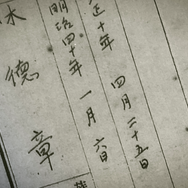 延十年 四月二十五日
明治四十年 一月 六日
永德章